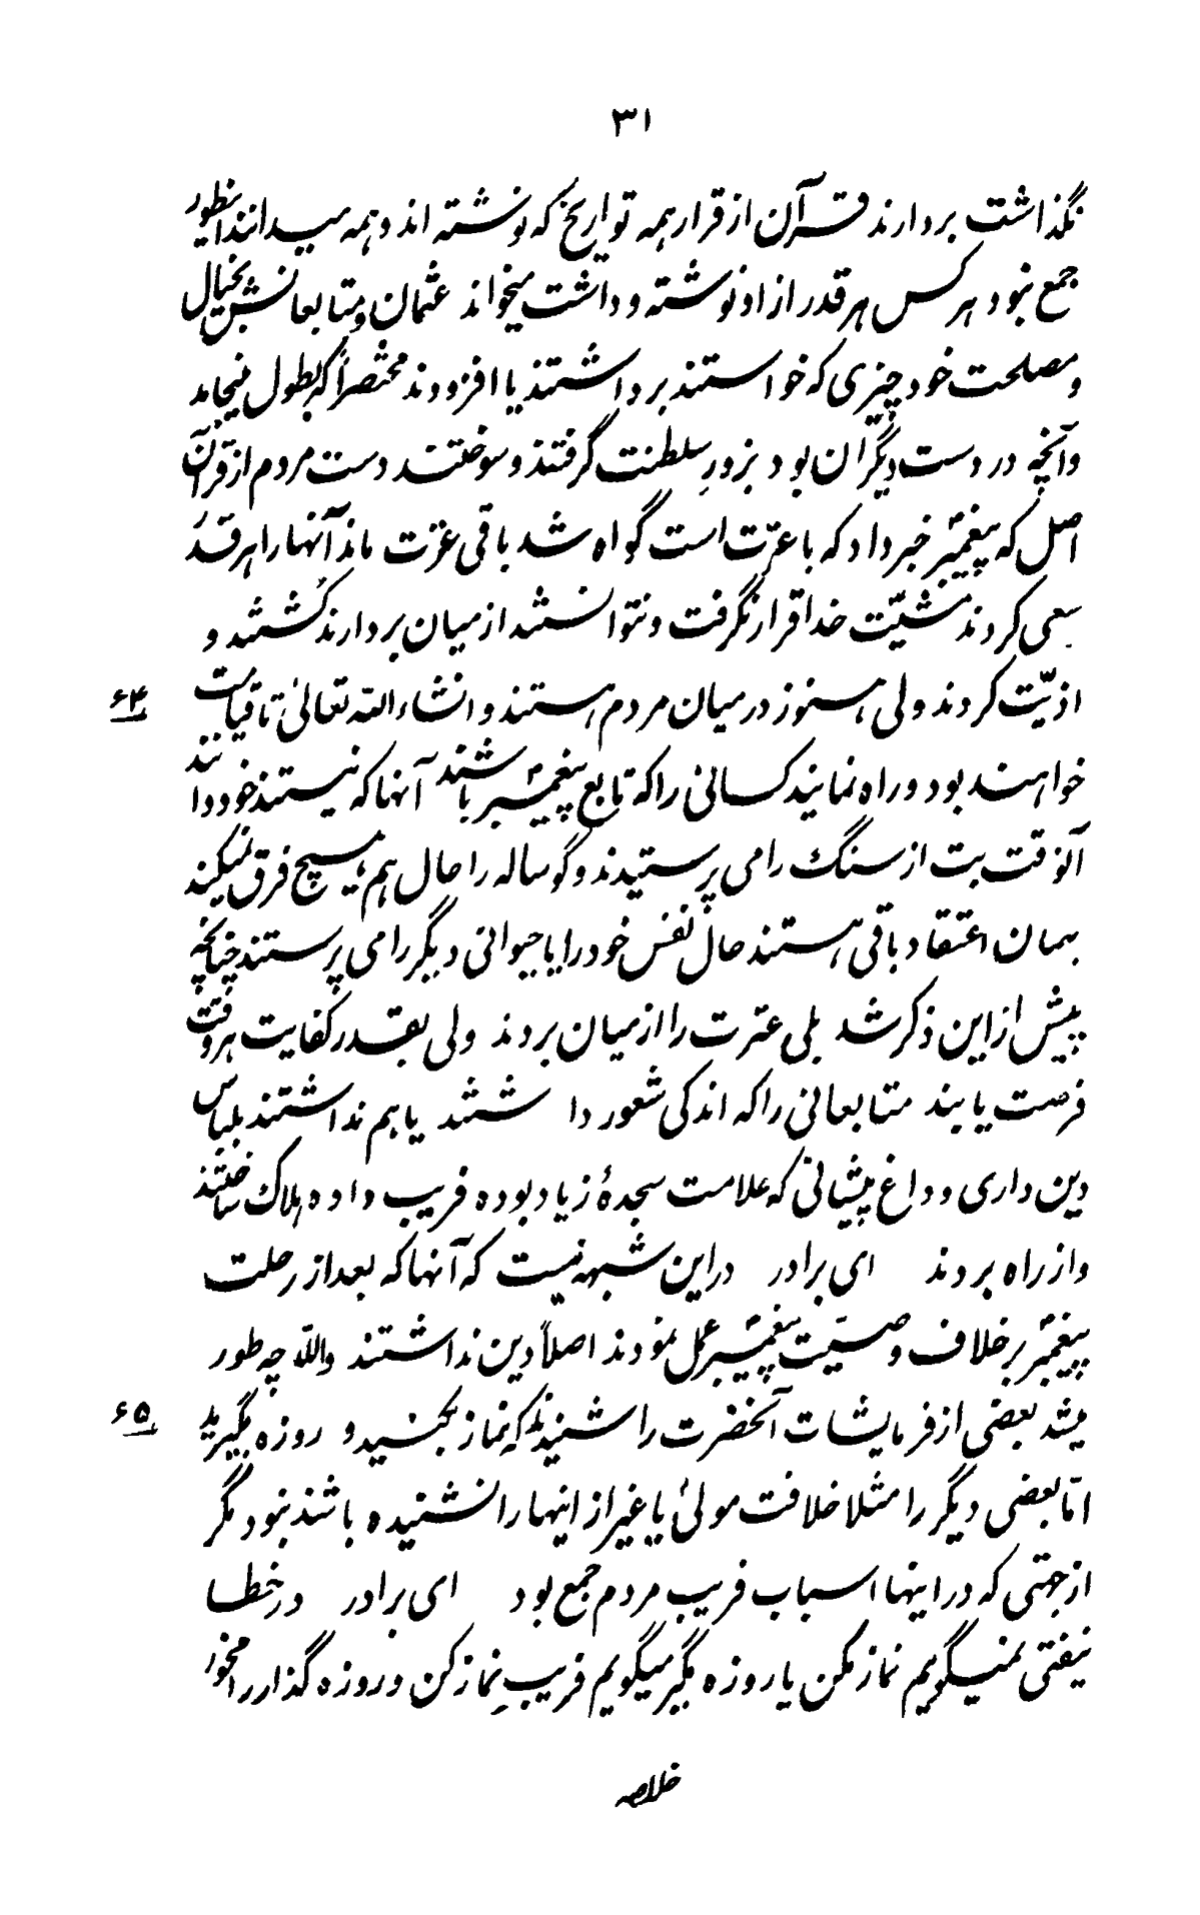 ۳۱
نگذاشت بردارند قرآن از قرار همه تواریخ که نوشته اند و همه میدانند اینطور
جمع نبود هر کس هر قدر از او نوشته و داشت میخواند عثمان و متابعانش بخیال
و مصلحت خود چیزی که خواستند برداشتند یا افزودند مختصراً که بطول نیجامد
و آنچه در دست دیگران بود بزورِ سلطنت گرفتند و سوختند دست مردم از قرآن
اصل که پیغمبر خبر داد که با عترت است گواه شد باقی عترت ماند آنها را هر قدر
سعی کردند مشیّت خدا قرار نگرفت و نتوانستند از میان بردارند کُشتند و
اذیّت کردند ولی هنوز در میان مردم هستند و انشاء الله تعالی تا قیامت
۶۴
خواهند بود و راه نمایند کسانی را که تابع پیغمبر باشند آنها که نیستند خود دانند
آنوقت بت از سنگ را می پرستیدند و گوساله را حال هم هیچ فرق نمیکند
بهمان اعتقاد باقی هستند حال نفس خود را یا حیوانی دیگر را می پرستند چنانچه
پیش از این ذکر شد بلی عترت را از میان بردند ولی بقدر کفایت هر وقت
فرصت یابند متابعانی را که اندکی شعور داشتند یا هم نداشتند بلباس
دین داری و داغ پیشانی که علامت سجدهٔ زیاد بوده فریب داده هلاک ساختند
و از راه بردند ای برادر در این شبهه نیست که آنها که بعد از رحلت
پیغمبر بر خلاف وصیّت پیغمبر عمل نمودند اصلاً دین نداشتند والله چه طور
میشد بعضی از فرمایشات آنحضرت را شنیدند که نماز بکنید و روزه بگیرید
۶۵
امّا بعضی دیگر را مثلا خلافت مولیٰ یا غیر از اینها را نشنیده باشند نبود مگر
از جهتی که در اینها اسباب فریب مردم جمع بود ای برادر در خطا
نیفتی نمیگویم نماز مکن یا روزه مگیر میگویم فریبِ نماز کن و روزه گذار را مخور
خلاصه